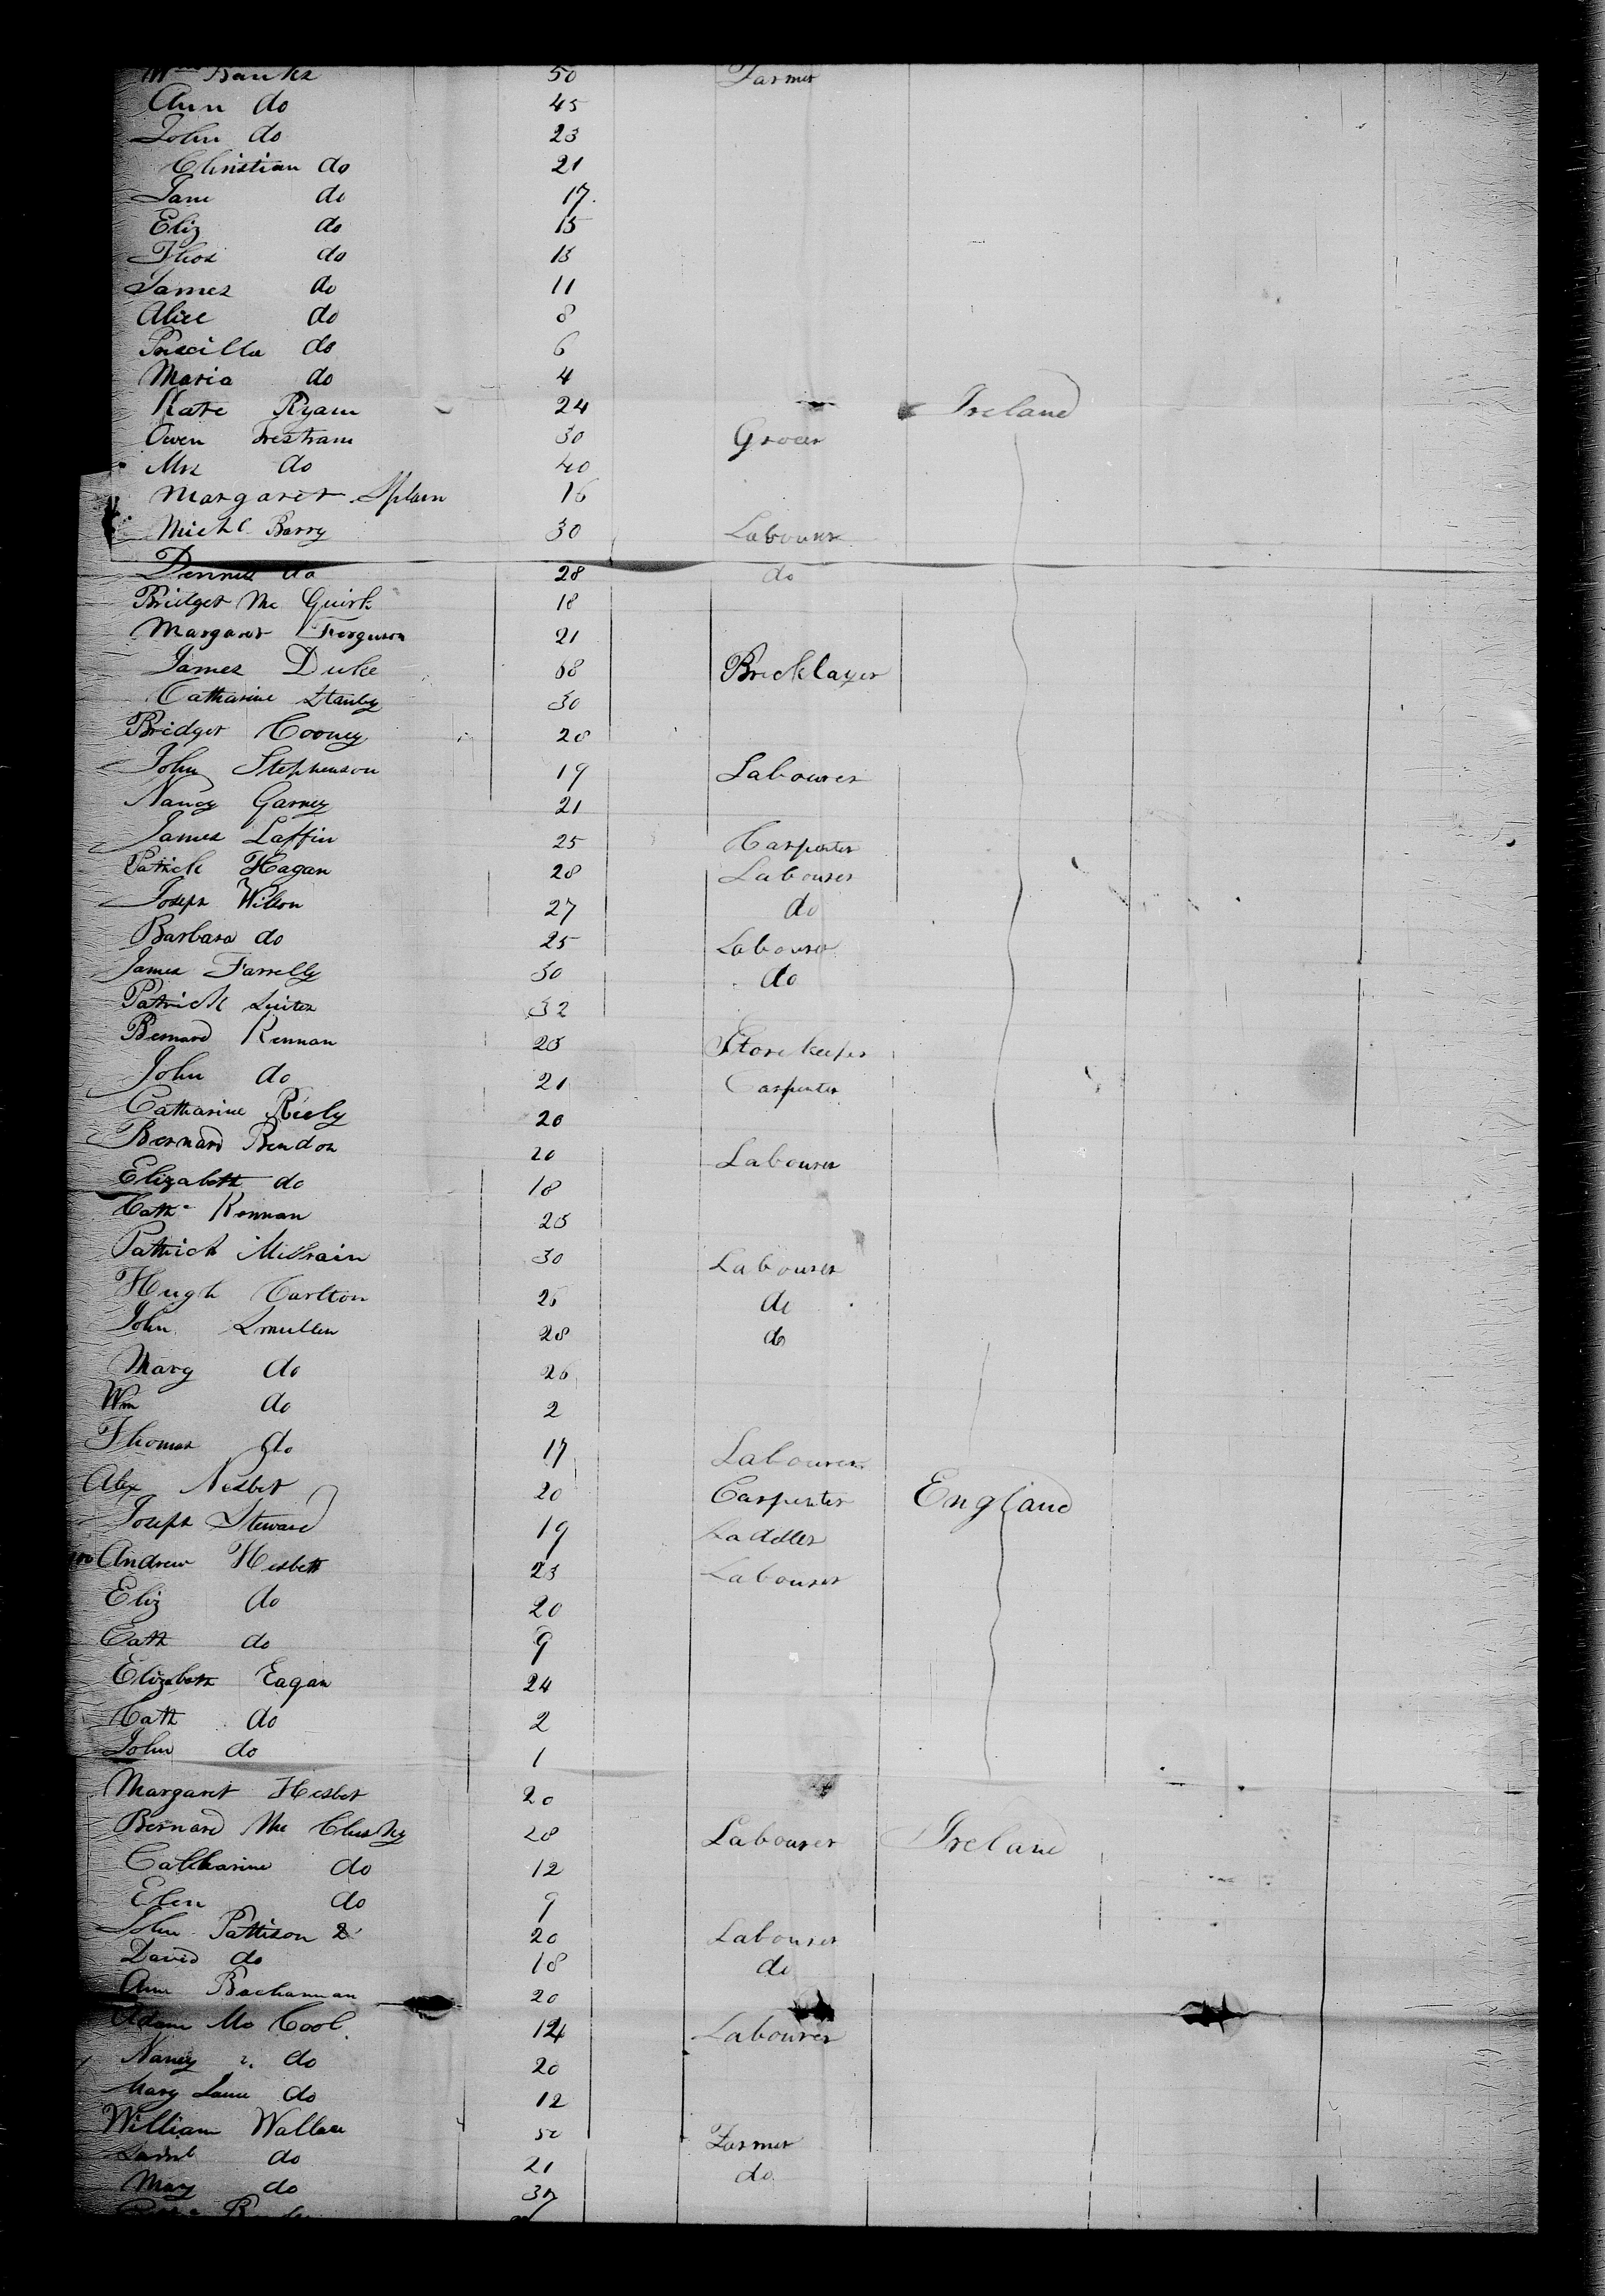 Banks 50 Farmer
Ann do 45
John do 23
Christian do 21
Jane do 17
Eliz do 15
Thos do 13
James do 11
Alice do 8
Priscilla do 6
Maria do 4
Kate Ryann 24 Ireland
Owen Trestram 30 Grocer
Mrs do 40
Margaret Splain 16
Michl Barry 30 Labourer
Dennis do 28 do
Bridget Mc Guirk 18
Margaret Ferguson 21
James Duke 68 Bricklayer
Catharine Stanley 30
Bridget Cooney 28
John Stephenson 19 Labourer
Nancy Garney 21
James Laffin 25 Carpenter
Patrick Hagan 28 Labourer
Joseph Wilson 27 do
Barbara do 25 Labourer
James Farrelly 30 do
Patrick 32
Bernard Kennan 25 Storekeeper
John do 21 Carpenter
Catharine Riely 20
Bernard Rendon 20 Labourer
Elizabeth do 18
Cath Kennan 25
Patrick 30 Labourer
Hugh Carlton 26 do
John Smullen 28 do
Mary do 26
Wm do 2
Thomas do 17 Labourer
Alex Nesbet 20 Carpenter England
Joseph Steward 19 Saddler
100 Andrew Hesbett 23 Labourer
Eliz do 20
Cath do 9
Elizabeth Eagan 24
Cath do 2
John do 1
Margaret Hesbet 20
Bernard Mc Clusky 28 Labourer Ireland
Catharine do 12
Elen do 9
John Pattison 20 Labourer
David do 18 do
Ann Buchannan 20
Adam Mc Cool 14 Labourer
Nancy do 20
Mary Jane do 12
William Wallace 50 Farmer
do 21 do
May do 30